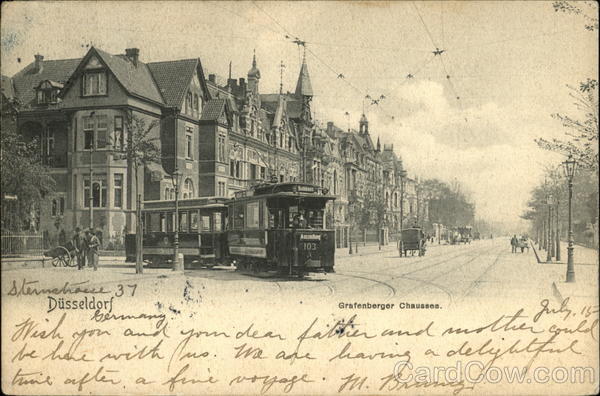 103
Sternstrasse 37
Düsseldorf
Germany
Grafenberger Chaussee.
July 15
Wish you and your dear father and mother could
be here with us. We are having a delightful
time after a fine voyage. M.
CardCow.com